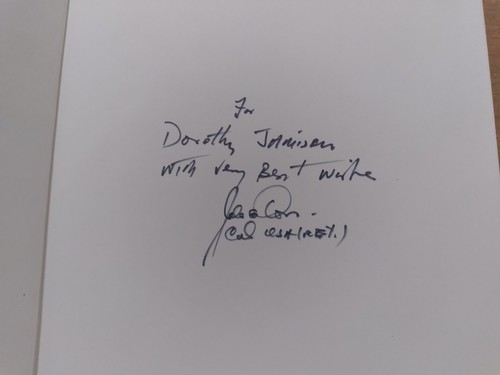 For
Dorothy
With very Best Wishes
Col USA (RET.)